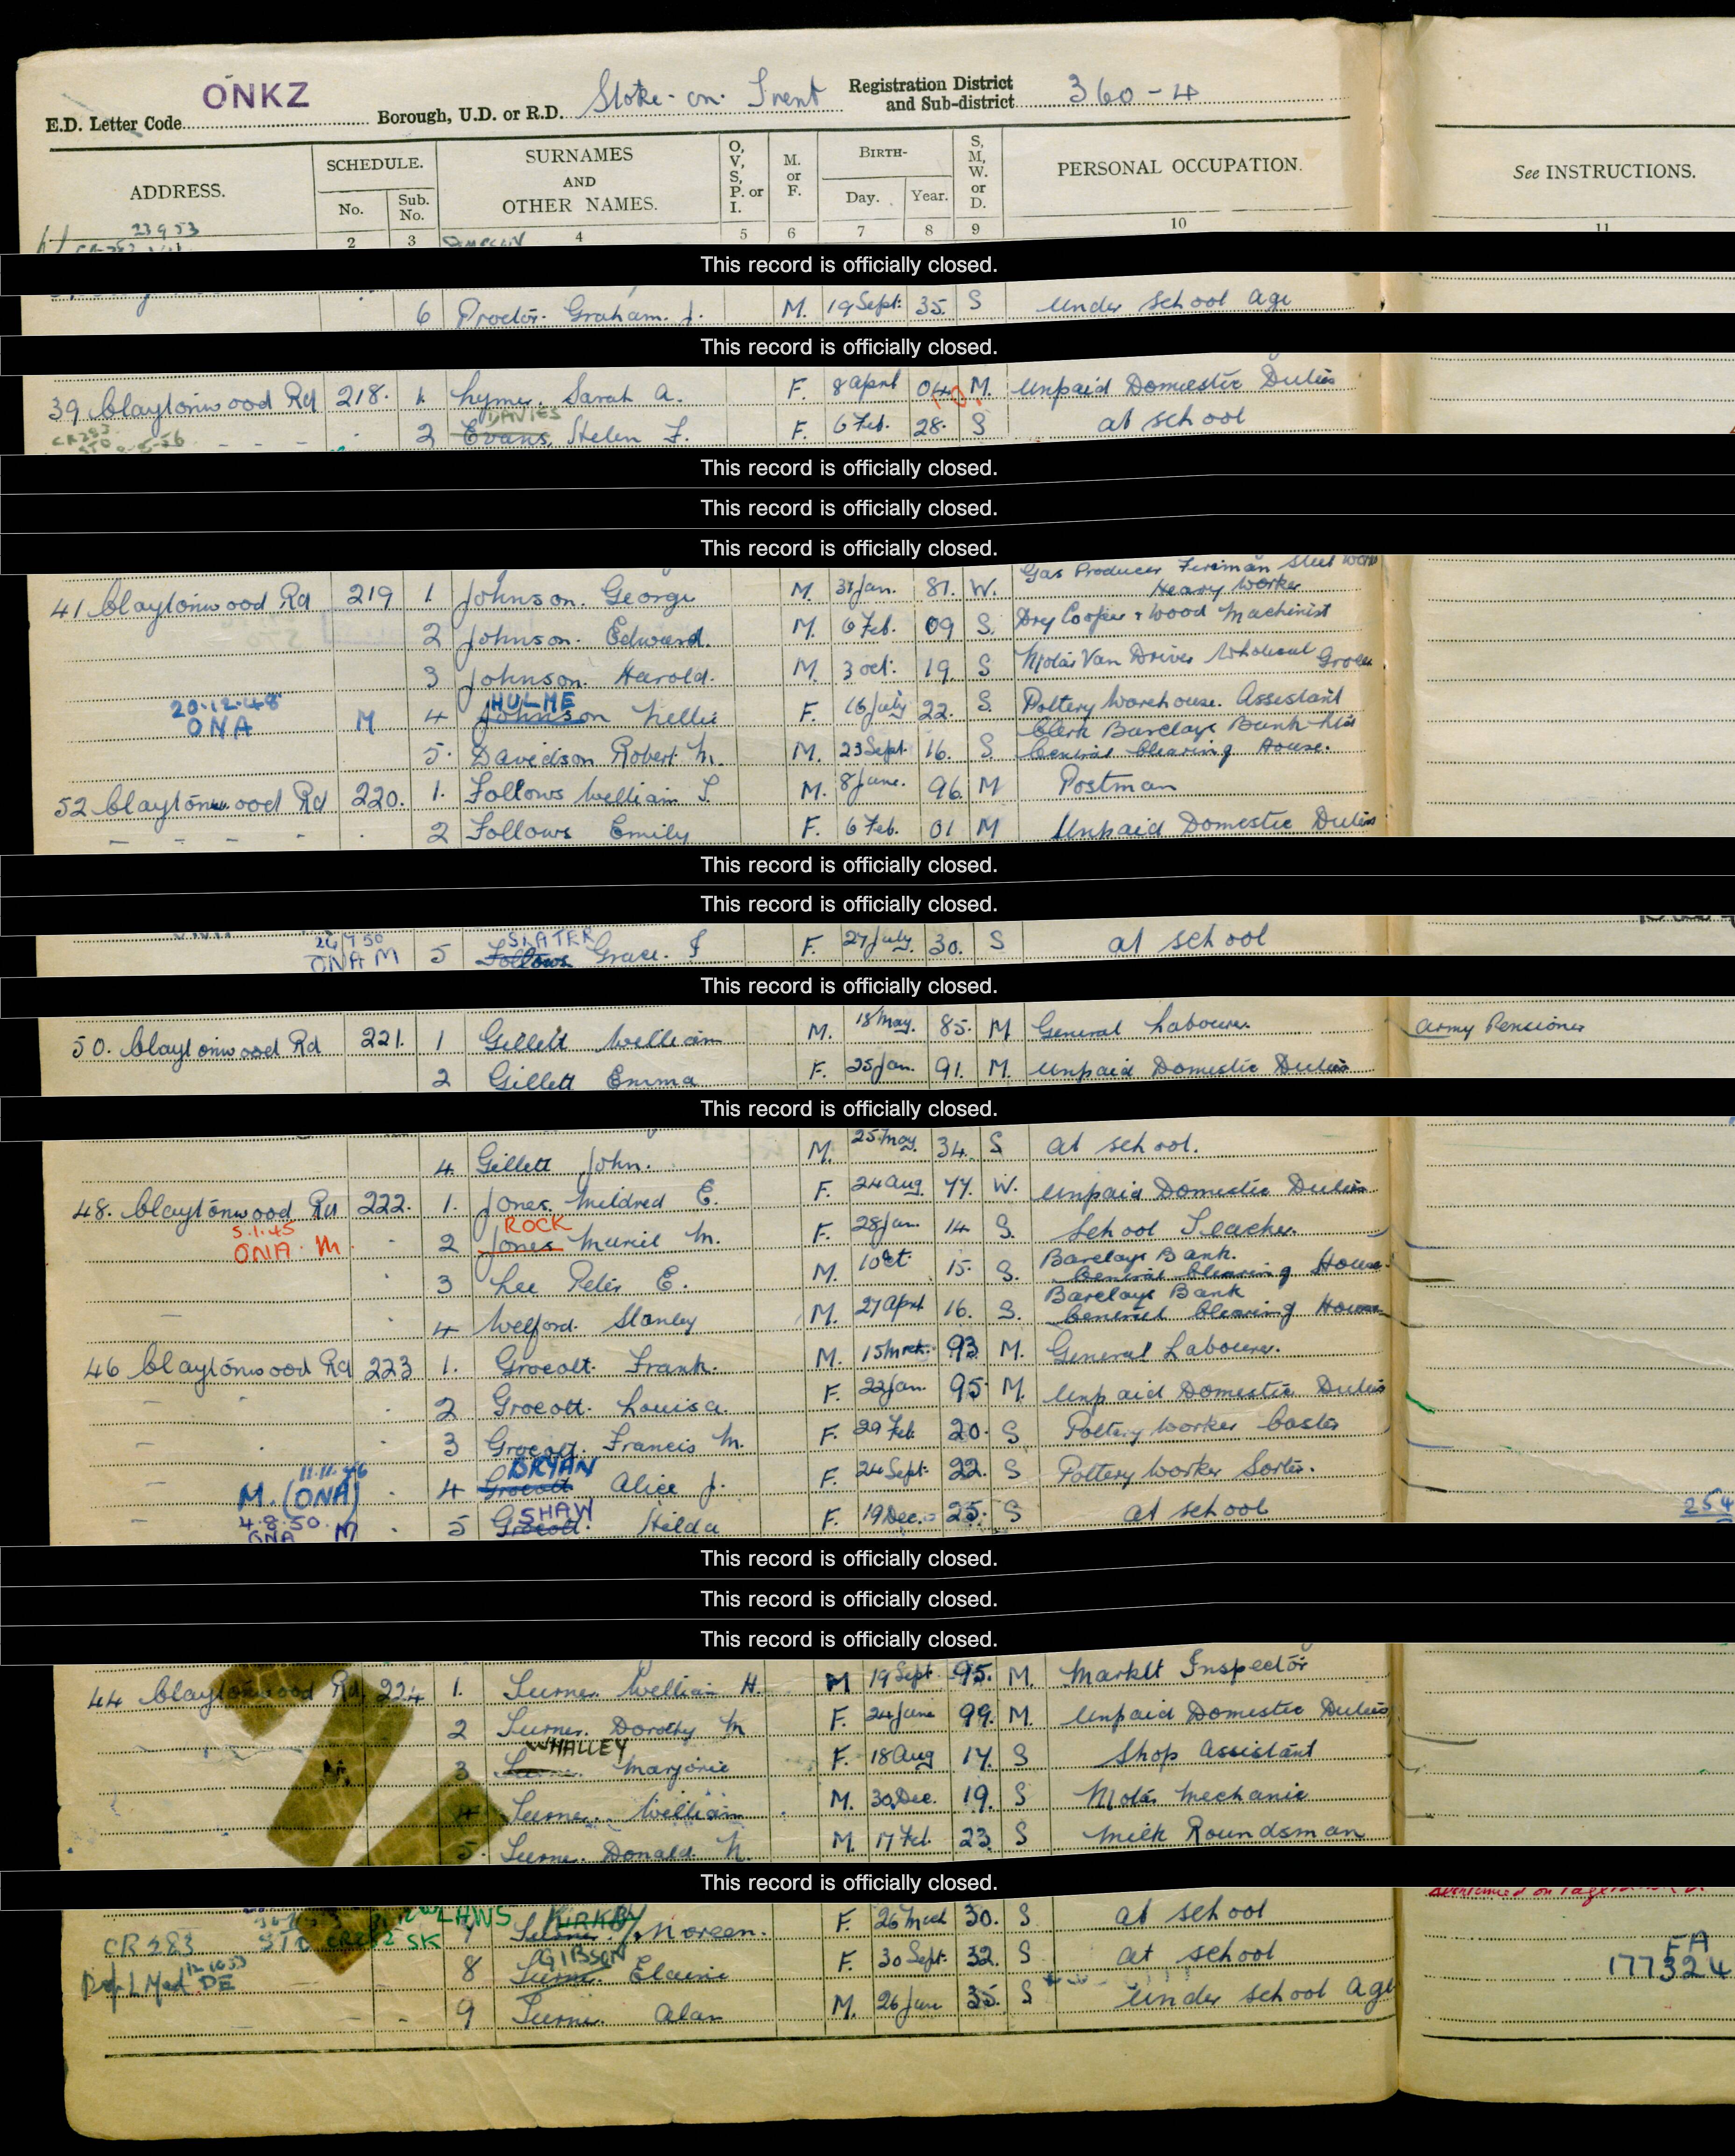 E.D. Letter Code ONKZ Borough, U.D. or R.D. Stoke-on-Trent Registration District and Sub-district 360-4
ADDRESS. SCHEDULE. No. Sub. No. SURNAMES AND OTHER NAMES. O, V, S, P. or I. M. or F. BIRTH- Day. Year. S, M, W. or D. PERSONAL OCCUPATION. See INSTRUCTIONS.
23953
2 3 4 5 6 7 8 9 10 11
This record is officially closed.
6 Proctor. Graham. J. M. 19 Sept. 35. S under school age
This record is officially closed.
39 Claytonwood Rd 218. 1. Lymer Sarah A. F. 8 April 04 M. Unpaid Domestic Duties
DAVIES
CR283 2 Evans, Helen F. F. 6 Feb. 28. S at school
This record is officially closed.
This record is officially closed.
This record is officially closed.
Gas Producer Fireman Steel Works
41 Claytonwood Rd 219 1. Johnson. George M. 31 Jan. 81. W. Heavy Worker
2 Johnson. Edward. M. 6 Feb. 09 S. Dry Cooper & Wood Machinist
3 Johnson. Harold. M. 3 Oct. 19. S Motor Van Driver Wholesale Grocer
20.12.48 HULME
ONA M 4 Johnson Nellie F. 16 July 22. S Pottery Warehouse. Assistant
Clerk Barclays Bank
5. Davidson Robert M. M. 23 Sept. 16. S Central Clearing House.
52 Claytonwood Rd 220. 1. Follows William T. M. 8 June. 96. M Postman
- - - 2 Follows Emily F. 6 Feb. 01 M Unpaid Domestic Duties
This record is officially closed.
This record is officially closed.
SLATER
ONA M 5 Follows Grace. F. 27 July. 30. S at school
This record is officially closed.
50. Claytonwood Rd 221. 1 Gillett William M. 18 May. 85. M General Labourer. Army Pensioner
2 Gillett Emma F. 25 Jan. 91. M. Unpaid Domestic Duties
This record is officially closed.
4. Gillett John. M. 25 May. 34. S at school.
48. Claytonwood Rd 222. 1. Jones. Mildred E. F. 24 Aug. 77. W. Unpaid Domestic Duties
5.1.45 ROCK
ONA. M 2 Jones Muriel M. F. 28 Jan. 14 S. School Teacher.
Barclays Bank.
3 Lee Peter E. M. 1 Oct. 15. S. Central Clearing House
Barclays Bank
4 Welford. Stanley M. 27 April 16. S. Central Clearing House
46 Claytonwood Rd 223 1. Grocott. Frank. M. 15 March. 93 M. General Labourer.
2 Grocott. Louisa. F. 22 Jan. 95. M. Unpaid Domestic Duties
3 Grocott. Francis M. F. 29 Feb. 20. S Pottery Worker Caster
11.11.46 BRYAN
M. (ONA) 4 Grocott Alice J. F. 24 Sept. 22. S Pottery Worker Sorter.
4.8.50. SHAW
ONA M 5 Grocott. Hilda F. 19 Dec. 25. S at school
254
This record is officially closed.
This record is officially closed.
This record is officially closed.
44 Claytonwood Rd 224 1. Turner. William H. M 19 Sept. 95. M. Markett Inspector
2 Turner. Dorothy M F. 24 June 99. M. Unpaid Domestic Duties
WHALLEY
3 Turner. Marjorie F. 18 Aug 17. S Shop Assistant
4 Turner. William M. 30 Dec. 19. S Motor Mechanic
5. Turner. Donald N. M. 17 Feb. 23 S Milk Roundsman
This record is officially closed.
LAWS KIRKBY
CR283 SK 7 Turner. Noreen. F. 26 March 30. S at school
GIBSON FA
DE 8 Turner. Elaine F. 30 Sept. 32. S at school 177324
9 Turner. Alan M. 26 June 35. S under school age